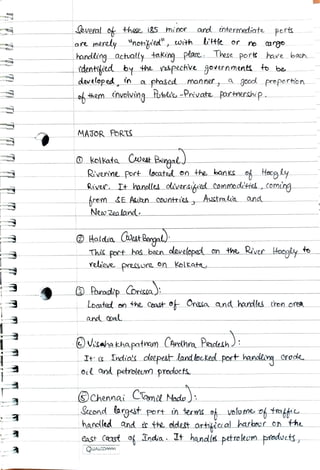 Several of these 185 minor and intermediate ports
are merely "notified", with little or no cargo
handling actually taking place. These ports have been
identified by the respective governments to be
developed, in a phased manner, a good proportion
of them involving Public-Private partnership.
MAJOR PORTS
① Kolkata (West Bengal)
Riverine port located on the banks of Hoogly
River. It handles diversified commodities, coming
from SE Asian countries, Australia and
New Zealand.
② Haldia (West Bengal)
This port has been developed on the River Hoogly to
relieve pressure on Kolkata.
③ Paradip (Orissa):
Located on the coast of Orissa and handles iron ore
and coal
④ Visakhakhapatnam (Andhra Pradesh):
It is India's deepest landlocked port handling crude
oil and petroleum products.
⑤ Chennai (Tamil Nadu):
Second largest port in terms of volume of traffic
handled and is the oldest artificial harbour on the
East Coast of India. It handles petroleum products,